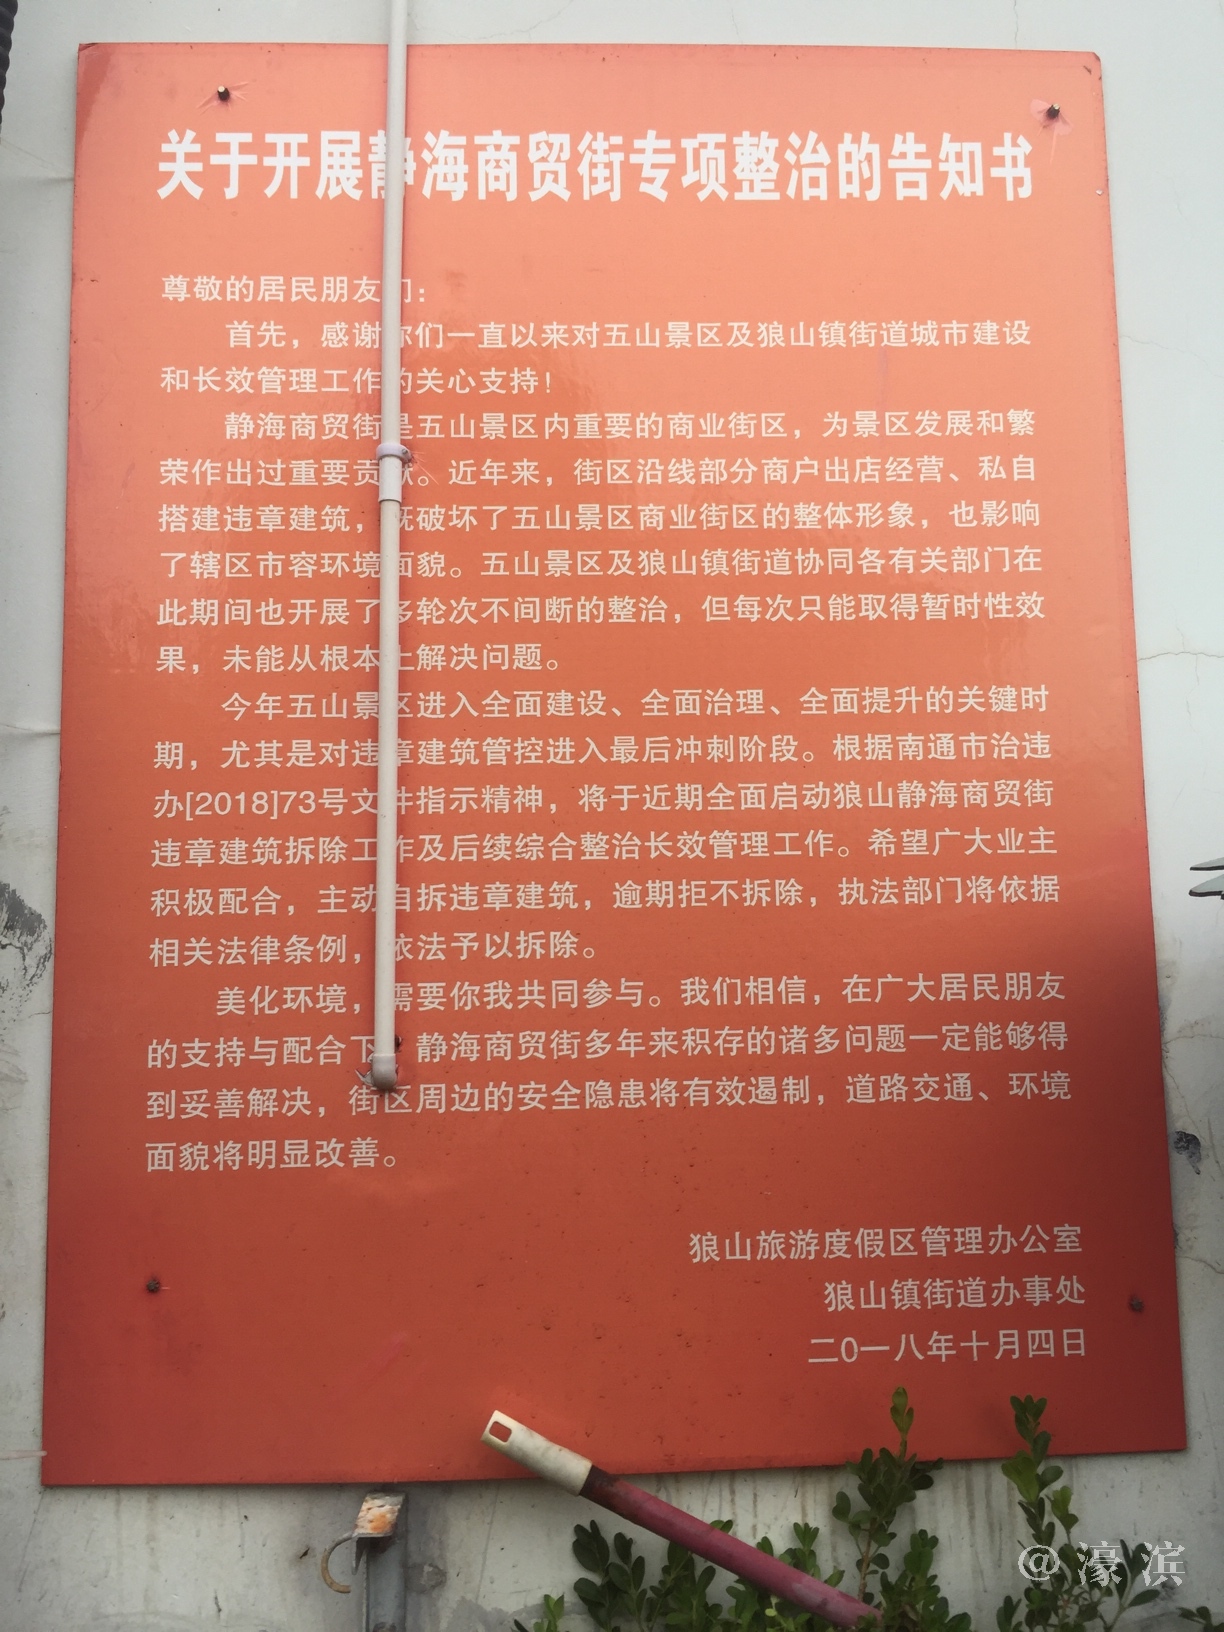 关于开展静海商贸街专项整治的告知书
尊敬的居民朋友们：
首先，感谢你们一直以来对五山景区及狼山镇街道城市建设
和长效管理工作的关心支持！
静海商贸街是五山景区内重要的商业街区，为景区发展和繁
荣作出过重要贡献。近年来，街区沿线部分商户出店经营、私自
搭建违章建筑，既破坏了五山景区商业街区的整体形象，也影响
了辖区市容环境面貌。五山景区及狼山镇街道协同各有关部门在
此期间也开展了多轮次不间断的整治，但每次只能取得暂时性效
果，未能从根本上解决问题。
今年五山景区进入全面建设、全面治理、全面提升的关键时
期，尤其是对违章建筑管控进入最后冲刺阶段。根据南通市治违
办[2018]73号文件指示精神，将于近期全面启动狼山静海商贸街
违章建筑拆除工作及后续综合整治长效管理工作。希望广大业主
积极配合，主动自拆违章建筑，逾期拒不拆除，执法部门将依据
相关法律条例，依法予以拆除。
美化环境，需要你我共同参与。我们相信，在广大居民朋友
的支持与配合下，静海商贸街多年来积存的诸多问题一定能够得
到妥善解决，街区周边的安全隐患将有效遏制，道路交通、环境
面貌将明显改善。
狼山旅游度假区管理办公室
狼山镇街道办事处
二0一八年十月四日
@濠滨